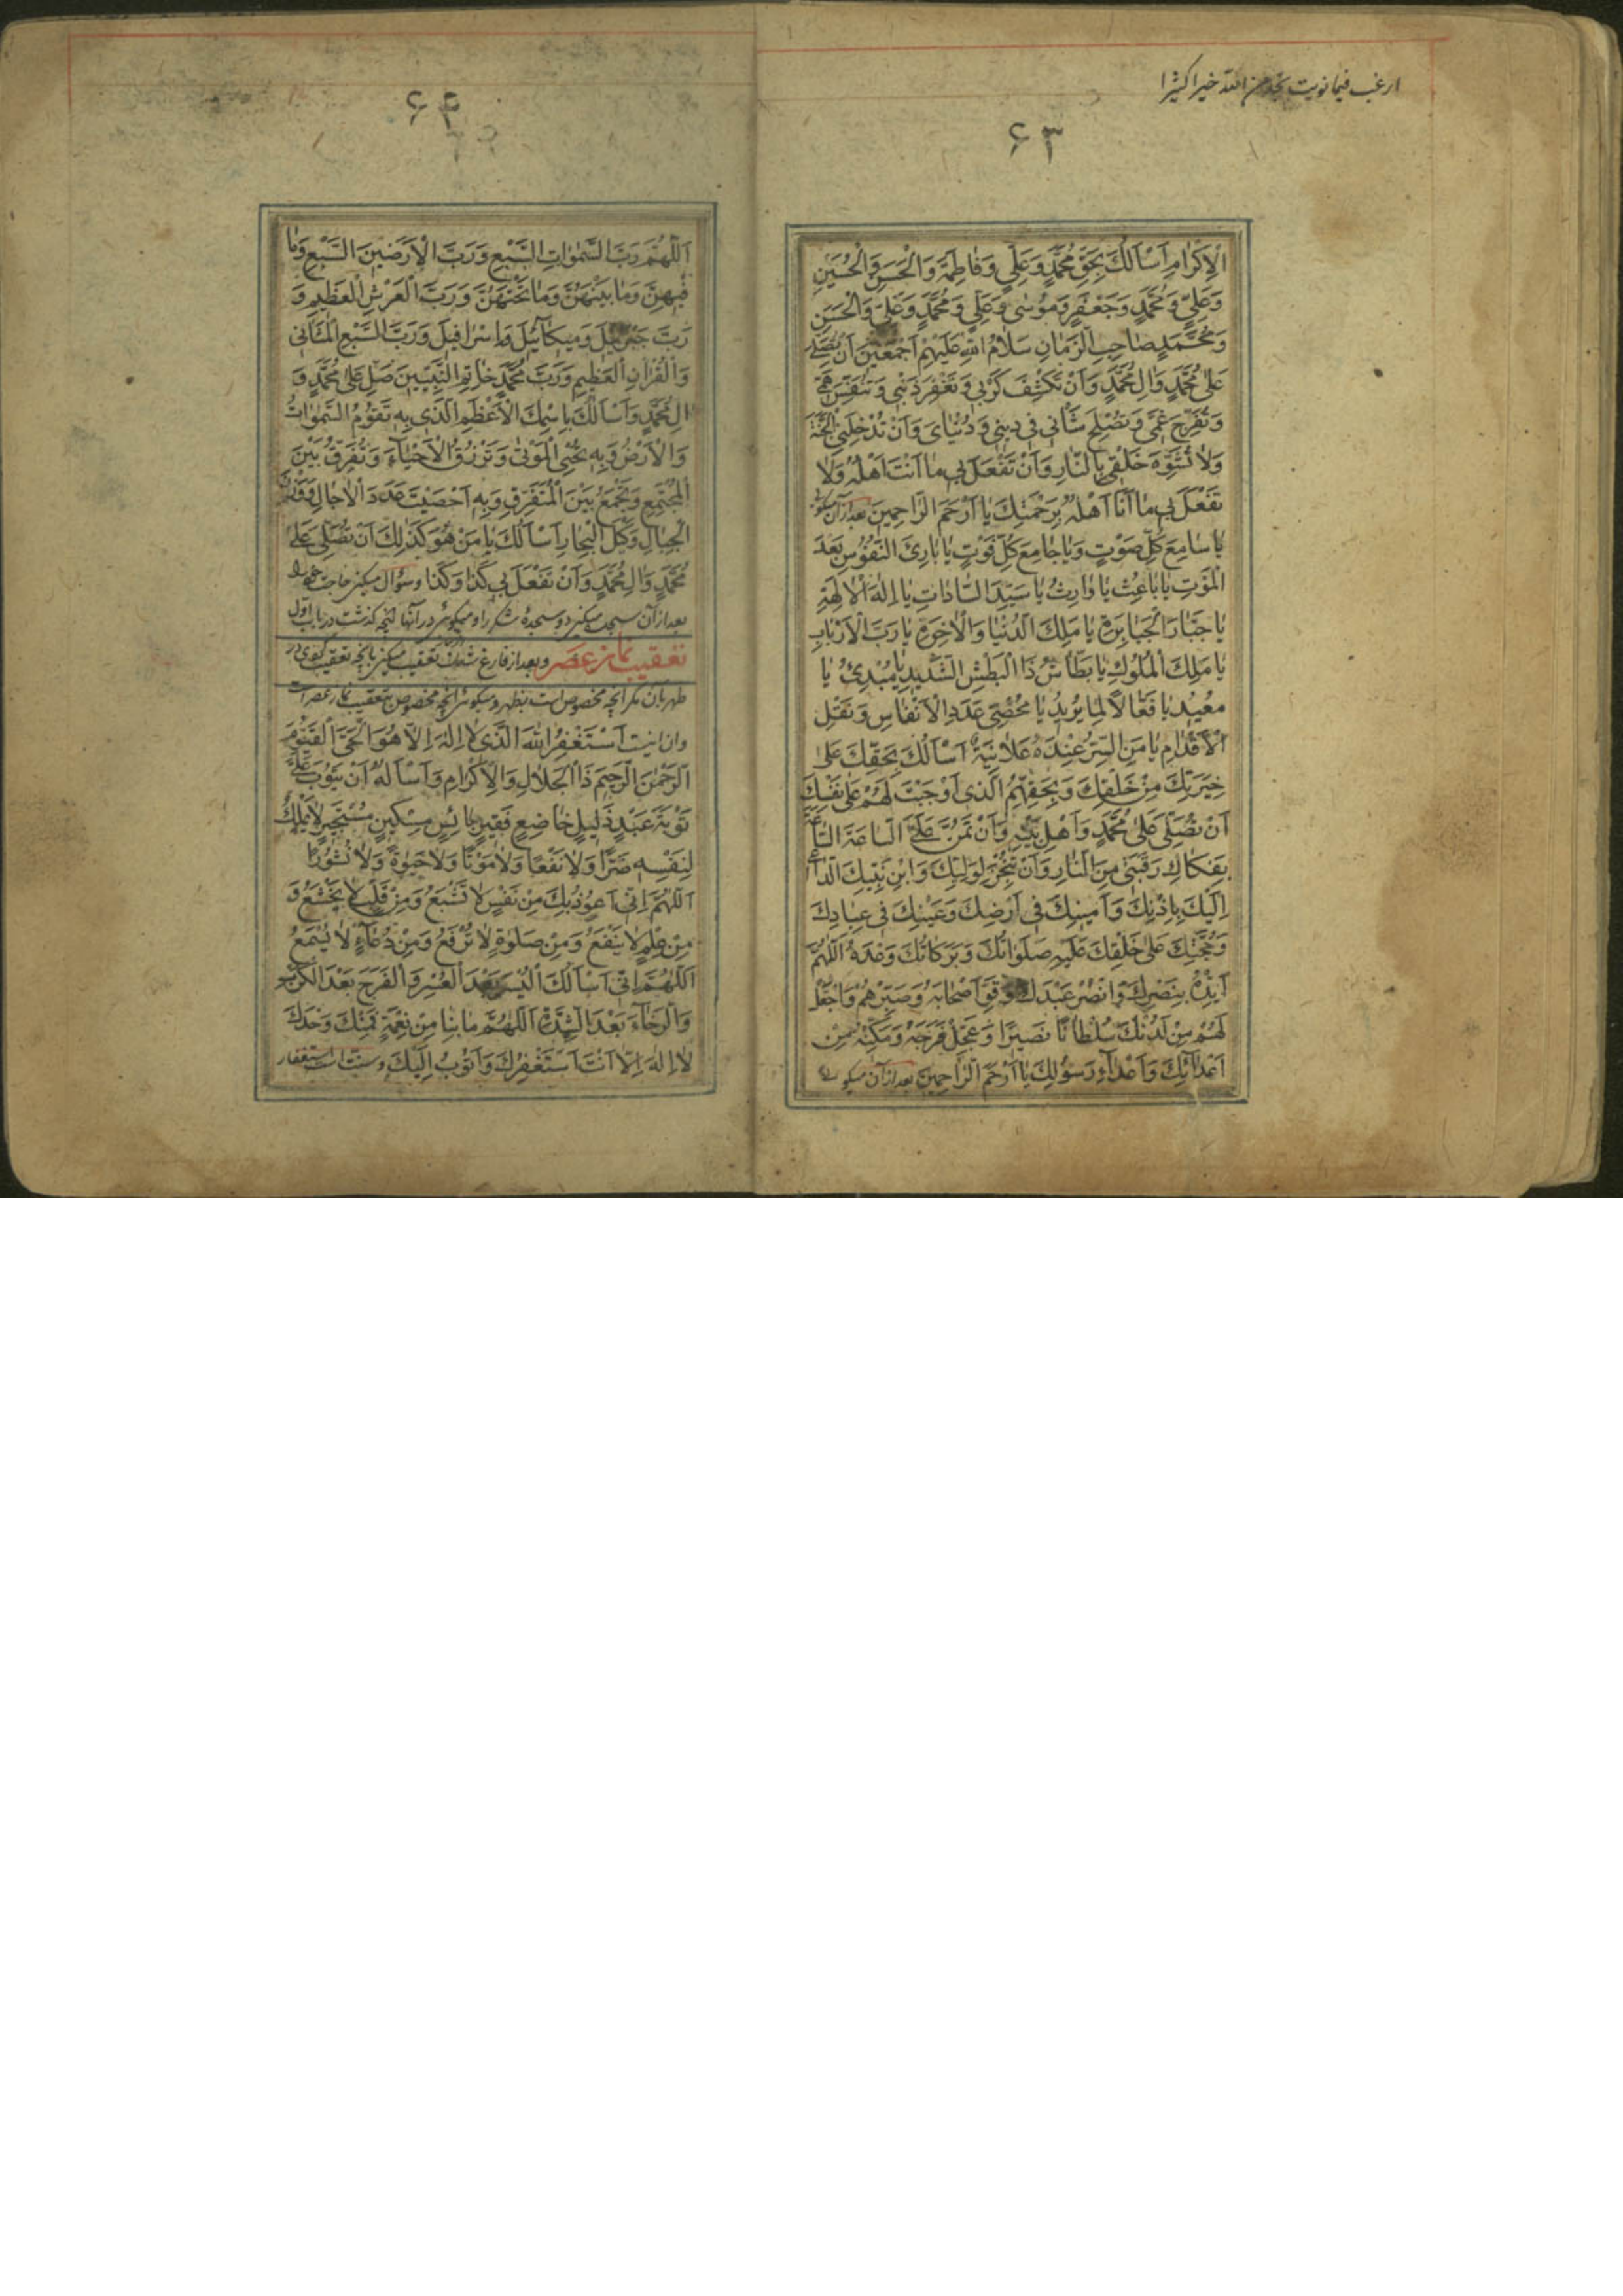 ارغب فیما نویت تجد من الله خیرا کثیرا
۶۳
الْاِکْرٰامِ اَسْاَلُکَ بِحَقِّ مُحَمَّدٍ وَعَلِیٍّ وَفٰاطِمَةَ وَالْحَسَنِ وَالْحُسَیْنِ
وَعَلِیٍّ وَمُحَمَّدٍ وَجَعْفَرٍ وَمُوسٰی وَعَلِیٍّ وَمُحَمَّدٍ وَعَلِیٍّ وَالْحَسَنِ
وَمُحَمَّدٍ صٰاحِبِ الزَّمٰانِ سَلٰامُ اللّٰهِ عَلَیْهِمْ اَجْمَعینَ اَنْ تُصَلِّیَ
عَلٰی مُحَمَّدٍ وَاٰلِ مُحَمَّدٍ وَاَنْ تَکْشِفَ کَرْبی وَتَغْفِرَ ذَنْبی وَتُنَفِّسَ هَمّی
وَتُفَرِّجَ غَمّی وَتُصْلِحَ شَأْنی فی دینی وَدُنْیٰایَ وَاَنْ تُدْخِلَنِی الْجَنَّةَ
وَلٰا تُشَوِّهَ خَلْقی بِالنّٰارِ وَاَنْ تَفْعَلَ بی مٰا اَنْتَ اَهْلُهُ وَلٰا
تَفْعَلَ بی مٰا اَنَا اَهْلُهُ بِرَحْمَتِکَ یٰا اَرْحَمَ الرّٰاحِمینَ بعد از آن میگوئی
یٰا سٰامِعَ کُلِّ صَوْتٍ وَیٰا جٰامِعَ کُلِّ فَوْتٍ یٰا بٰارِئَ النُّفُوسِ بَعْدَ
الْمَوْتِ یٰا بٰاعِثُ یٰا وٰارِثُ یٰا سَیِّدَ السّٰادٰاتِ یٰا اِلٰهَ الْاٰلِهَةِ
یٰا جَبّٰارَ الْجَبٰابِرَةِ یٰا مَلِکَ الدُّنْیٰا وَالْاٰخِرَةِ یٰا رَبَّ الْاَرْبٰابِ
یٰا مَلِکَ الْمُلُوکِ یٰا بَطّٰاشُ ذَا الْبَطْشِ الشَّدیدِ یٰا مُبْدِئُ یٰا
مُعیدُ یٰا فَعّٰالًا لِمٰا یُریدُ یٰا مُحْصِیَ عَدَدِ الْاَنْفٰاسِ وَنَقْلِ
الْاَقْدٰامِ یٰا مَنِ السِّرُّ عِنْدَهُ عَلٰانِیَةٌ اَسْاَلُکَ بِحَقِّکَ عَلٰی
خِیَرَتِکَ مِنْ خَلْقِکَ وَبِحَقِّهِمُ الَّذی اَوْجَبْتَ لَهُمْ عَلٰی نَفْسِکَ
اَنْ تُصَلِّیَ عَلٰی مُحَمَّدٍ وَاَهْلِ بَیْتِهِ وَاَنْ تَمُنَّ عَلَیَّ السّٰاعَةَ السّٰاعَةَ
بِفَکٰاکِ رَقَبَتی مِنَ النّٰارِ وَاَنْ تُنْجِزَ لِوَلِیِّکَ وَابْنِ نَبِیِّکَ الدّٰاعی
اِلَیْکَ بِاِذْنِکَ وَاَمینِکَ فی اَرْضِکَ وَعَیْنِکَ فی عِبٰادِکَ
وَحُجَّتِکَ عَلٰی خَلْقِکَ عَلَیْهِ صَلَوٰاتُکَ وَبَرَکٰاتُکَ وَعْدَهُ اَللّٰهُمَّ
اَیِّدْهُ بِنَصْرِکَ وَانْصُرْ عَبْدَکَ وَقَوِّ اَصْحٰابَهُ وَصَبِّرْهُمْ وَاجْعَلْ
لَهُمْ مِنْ لَدُنْکَ سُلْطٰانًا نَصیرًا وَعَجِّلْ فَرَجَهُ وَمَکِّنْهُ مِنْ
اَعْدٰائِکَ وَاَعْدٰاءِ رَسُولِکَ یٰا اَرْحَمَ الرّٰاحِمینَ بعد از آن میگوئی
۶۴
اَللّٰهُمَّ رَبَّ السَّمٰوٰاتِ السَّبْعِ وَرَبَّ الْاَرَضینَ السَّبْعِ وَمٰا
فیهِنَّ وَمٰا بَیْنَهُنَّ وَمٰا تَحْتَهُنَّ وَرَبَّ الْعَرْشِ الْعَظیمِ وَ
رَبَّ جَبْرَئیلَ وَمیکٰائیلَ وَاِسْرٰافیلَ وَرَبَّ السَّبْعِ الْمَثٰانی
وَالْقُرْاٰنِ الْعَظیمِ وَرَبَّ مُحَمَّدٍ خٰاتَمِ النَّبِیّینَ صَلِّ عَلٰی مُحَمَّدٍ وَ
اٰلِ مُحَمَّدٍ وَاَسْاَلُکَ بِاسْمِکَ الْاَعْظَمِ الَّذی بِهِ تَقُومُ السَّمٰوٰاتُ
وَالْاَرْضُ وَبِهِ تُحْیِی الْمَوْتٰی وَتَرْزُقُ الْاَحْیٰاءَ وَتُفَرِّقُ بَیْنَ
الْمُجْتَمِعِ وَتَجْمَعُ بَیْنَ الْمُتَفَرِّقِ وَبِهِ اَحْصَیْتَ عَدَدَ الْاٰجٰالِ وَوَزْنَ
الْجِبٰالِ وَکَیْلَ الْبِحٰارِ اَسْاَلُکَ یٰا مَنْ هُوَ کَذٰلِکَ اَنْ تُصَلِّیَ عَلٰی
مُحَمَّدٍ وَاٰلِ مُحَمَّدٍ وَاَنْ تَفْعَلَ بی کَذٰا وَکَذٰا وسؤال میکنی حاجت خود را
بعد از آن سجده میکنی دو سجدهٔ شکر را و میگوئی در آنها آنچه گذشت در باب اول
تعقیب نماز عصر و بعد از فارغ شدن تعقیب میکنی بآنچه تعقیب کردی در
ظهر بآن مگر آنچه مخصوص است بظهر و میگوئی آنچه مخصوص بتعقیب نماز عصر است
و آن اینست اَسْتَغْفِرُ اللّٰهَ الَّذی لٰا اِلٰهَ اِلّٰا هُوَ الْحَیَّ الْقَیُّومَ
الرَّحْمٰنَ الرَّحیمَ ذَا الْجَلٰالِ وَالْاِکْرٰامِ وَاَسْاَلُهُ اَنْ یَتُوبَ عَلَیَّ
تَوْبَةَ عَبْدٍ ذَلیلٍ خٰاضِعٍ فَقیرٍ بٰائِسٍ مِسْکینٍ مُسْتَجیرٍ لٰا یَمْلِکُ
لِنَفْسِهِ ضَرًّا وَلٰا نَفْعًا وَلٰا مَوْتًا وَلٰا حَیٰوةً وَلٰا نُشُورًا
اَللّٰهُمَّ اِنّی اَعُوذُ بِکَ مِنْ نَفْسٍ لٰا تَشْبَعُ وَمِنْ قَلْبٍ لٰا یَخْشَعُ وَ
مِنْ عِلْمٍ لٰا یَنْفَعُ وَمِنْ صَلٰوةٍ لٰا تُرْفَعُ وَمِنْ دُعٰاءٍ لٰا یُسْمَعُ
اَللّٰهُمَّ اِنّی اَسْاَلُکَ الْیُسْرَ بَعْدَ الْعُسْرِ وَالْفَرَجَ بَعْدَ الْکَرْبِ
وَالرَّخٰاءَ بَعْدَ الشِّدَّةِ اَللّٰهُمَّ مٰا بِنٰا مِنْ نِعْمَةٍ فَمِنْکَ وَحْدَکَ
لٰا اِلٰهَ اِلّٰا اَنْتَ اَسْتَغْفِرُکَ وَاَتُوبُ اِلَیْکَ و سنت است استغفار